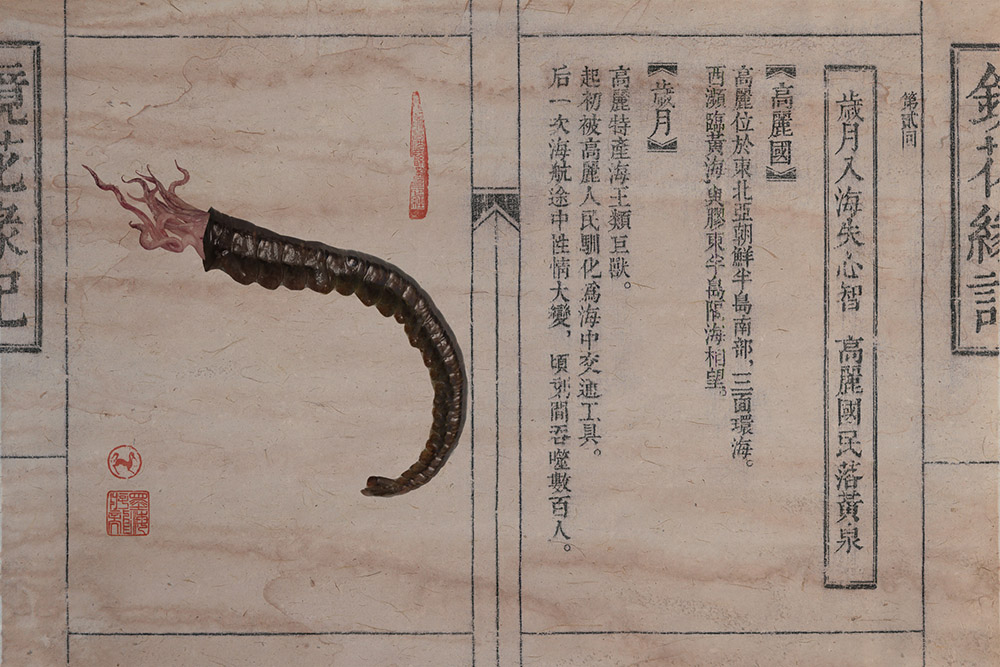 第貳回
歲月入海失心智 高麗國民落黃泉
【高麗國】
高麗位於東北亞朝鮮半島南部，三面環海。
西瀕臨黃海與膠東半島隔海相望。
【歲月】
高麗特產海王類巨獸。
起初被高麗人民馴化為海中交通工具。
后一次海航途中性情大變，頃刻間吞噬數百人。
鏡花緣記